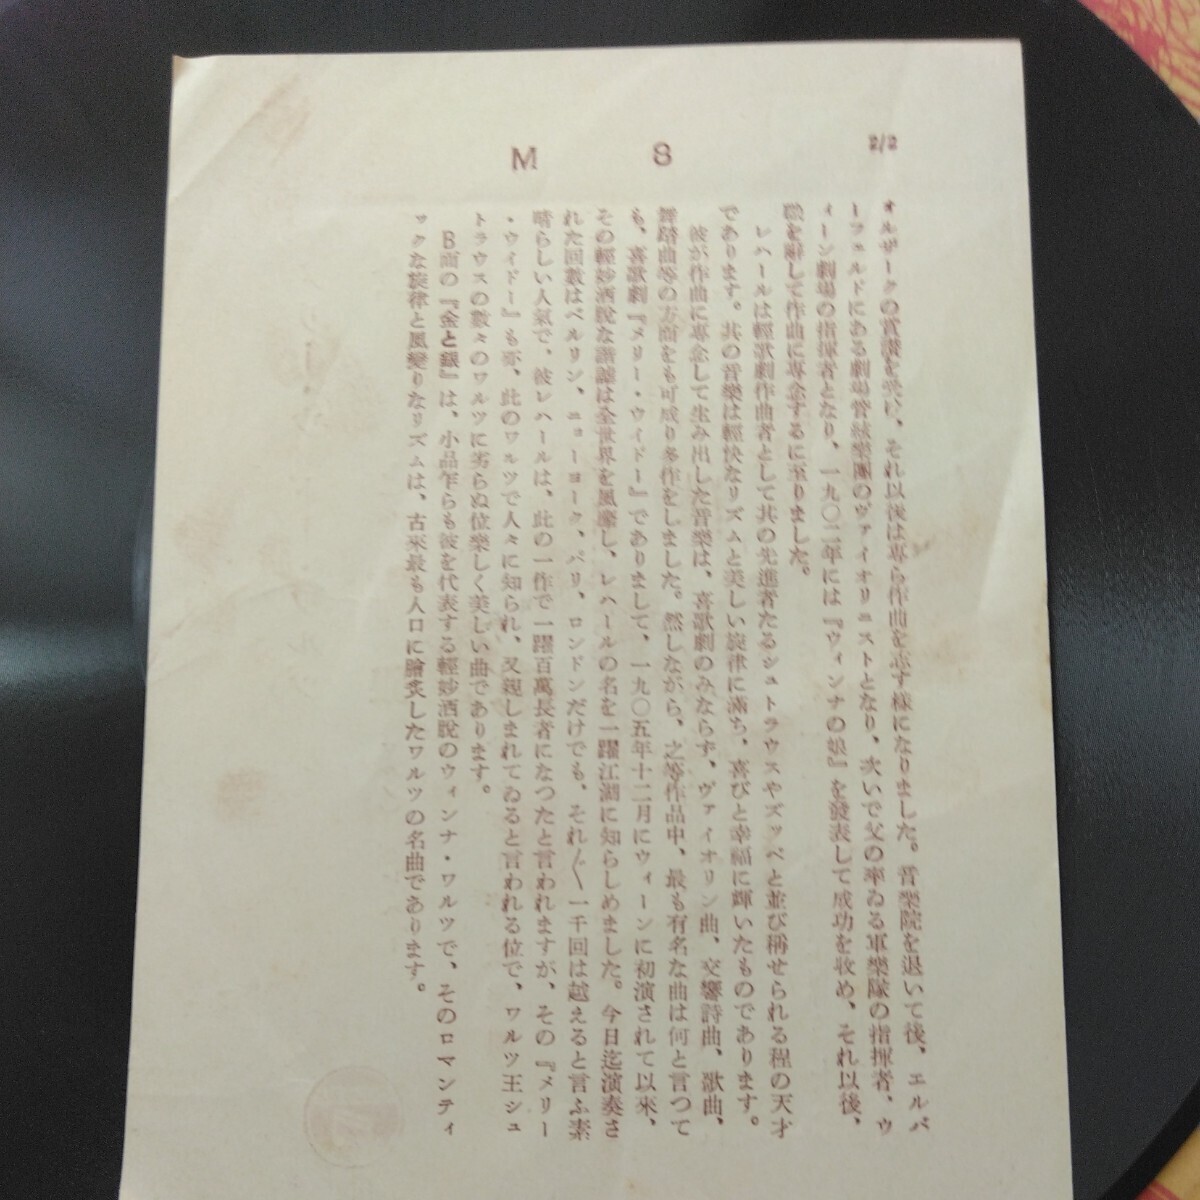 2/2
M 8
オルザークの賞讃を受け、それ以後は専ら作曲を志す様になりました。音樂院を退いて後、エルバ
ーフェルドにある劇場管絃樂團のヴァイオリニストとなり、次いで父の率ゐる軍樂隊の指揮者、ウ
ィーン劇場の指揮者となり、一九〇二年には『ウィンナの娘』を發表して成功を收め、それ以後、
職を辭して作曲に専念するに至りました。
レハールは輕歌劇作曲者として其の先進者たるシュトラウスやズッペと並び稱せられる程の天才
であります。其の音樂は輕快なリズムと美しい旋律に滿ち、喜びと幸福に輝いたものであります。
彼が作曲に専念して生み出した音樂は、喜歌劇のみならず、ヴァイオリン曲、交響詩曲、歌曲、
舞踏曲等の方面をも可成り多作をしました。然しながら、之等作品中、最も有名な曲は何と言つて
も、喜歌劇『メリー・ウイドー』でありまして、一九〇五年十二月にウィーンに初演されて以來、
その輕妙洒脫な諧謔は全世界を風靡し、レハールの名を一躍江湖に知らしめました。今日迄演奏さ
れた回數はベルリン、ニューヨーク、パリ、ロンドンだけでも、それ〴〵一千回は越えると言ふ素
晴らしい人氣で、彼レハールは、此の一作で一躍百萬長者になつたと言われますが、その『メリー
・ウイドー』も亦、此のワルツで人々に知られ、又親しまれてゐると言われる位で、ワルツ王シュ
トラウスの數々のワルツに劣らぬ位樂しく美しい曲であります。
B面の『金と銀』は、小品乍らも彼を代表する輕妙洒脫のウィンナ・ワルツで、そのロマンティ
ックな旋律と風變りなリズムは、古來最も人口に膾炙したワルツの名曲であります。